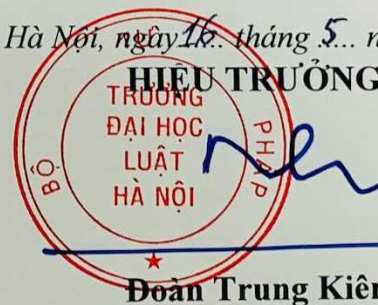 Hà Nội, ngày 16 tháng 5
HIỆU TRƯỞNG
BỘ TƯ PHÁP
TRƯỜNG
ĐẠI HỌC
LUẬT
HÀ NỘI
Đoàn Trung Kiên